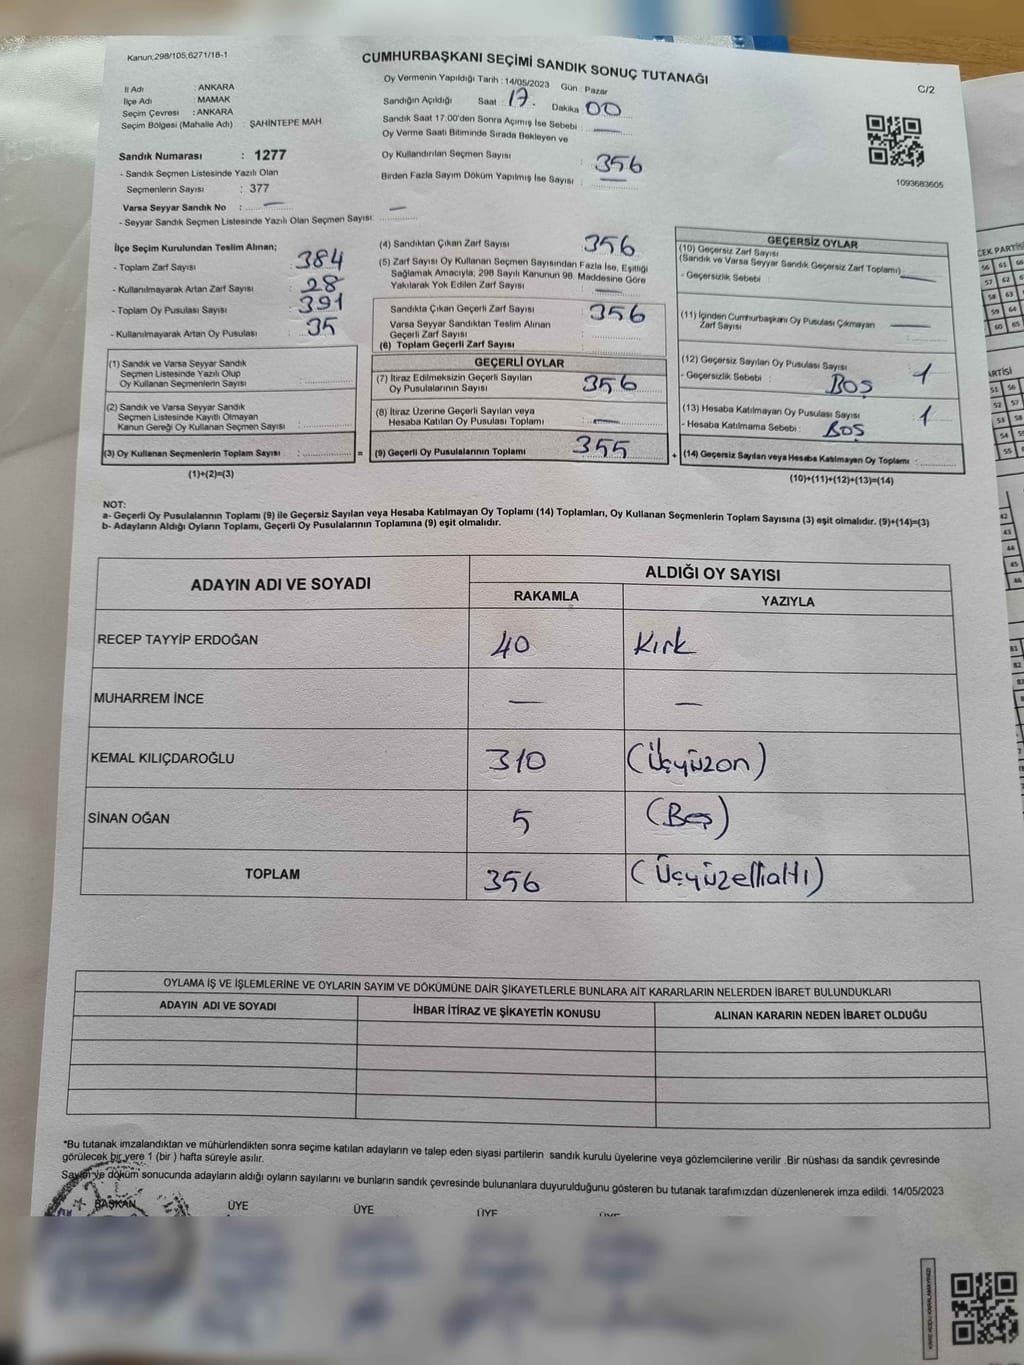 Kanun;298/105,6271/18-1
CUMHURBAŞKANI SEÇİMİ SANDIK SONUÇ TUTANAĞI
C/2
İl Adı : ANKARA
İlçe Adı : MAMAK
Seçim Çevresi : ANKARA
Seçim Bölgesi (Mahalle Adı) : ŞAHİNTEPE MAH
Sandık Numarası : 1277
- Sandık Seçmen Listesinde Yazılı Olan
Seçmenlerin Sayısı : 377
Varsa Seyyar Sandık No : —
- Seyyar Sandık Seçmen Listesinde Yazılı Olan Seçmen Sayısı: —
Oy Vermenin Yapıldığı Tarih : 14/05/2023 Gün : Pazar
Sandığın Açıldığı Saat : 17. Dakika 00
Sandık Saat 17:00'den Sonra Açımış İse Sebebi : —
Oy Verme Saati Bitiminde Sırada Bekleyen ve
Oy Kullandırılan Seçmen Sayısı : 356
Birden Fazla Sayım Döküm Yapılmış İse Sayısı : —
1093683605
İlçe Seçim Kurulundan Teslim Alınan;
- Toplam Zarf Sayısı : 384
- Kullanılmayarak Artan Zarf Sayısı : 28
- Toplam Oy Pusulası Sayısı : 391
- Kullanılmayarak Artan Oy Pusulası : 35
(1) Sandık ve Varsa Seyyar Sandık
Seçmen Listesinde Yazılı Olup
Oy Kullanan Seçmenlerin Sayısı :
(2) Sandık ve Varsa Seyyar Sandık
Seçmen Listesinde Kayıtlı Olmayan
Kanun Gereği Oy Kullanan Seçmen Sayısı :
(3) Oy Kullanan Seçmenlerin Toplam Sayısı : =
(1)+(2)=(3)
(4) Sandıktan Çıkan Zarf Sayısı : 356
(5) Zarf Sayısı Oy Kullanan Seçmen Sayısından Fazla İse, Eşitliği
Sağlamak Amacıyla, 298 Sayılı Kanunun 98. Maddesine Göre
Yakılarak Yok Edilen Zarf Sayısı : —
Sandıkta Çıkan Geçerli Zarf Sayısı : 356
Varsa Seyyar Sandıktan Teslim Alınan
Geçerli Zarf Sayısı :
(6) Toplam Geçerli Zarf Sayısı :
GEÇERLİ OYLAR
(7) İtiraz Edilmeksizin Geçerli Sayılan
Oy Pusulalarının Sayısı : 356
(8) İtiraz Üzerine Geçerli Sayılan veya
Hesaba Katılan Oy Pusulası Toplamı : —
(9) Geçerli Oy Pusulalarının Toplamı : 355 +
GEÇERSİZ OYLAR
(10) Geçersiz Zarf Sayısı
(Sandık ve Varsa Seyyar Sandık Geçersiz Zarf Toplamı) —
- Geçersizlik Sebebi :
(11) İçinden Cumhurbaşkanı Oy Pusulası Çıkmayan
Zarf Sayısı : —
(12) Geçersiz Sayılan Oy Pusulası Sayısı : 1
- Geçersizlik Sebebi : BOŞ
(13) Hesaba Katılmayan Oy Pusulası Sayısı : 1
- Hesaba Katılmama Sebebi : BOŞ
(14) Geçersiz Sayılan veya Hesaba Katılmayan Oy Toplamı :
(10)+(11)+(12)+(13)=(14)
NOT:
a- Geçerli Oy Pusulalarının Toplamı (9) ile Geçersiz Sayılan veya Hesaba Katılmayan Oy Toplamı (14) Toplamları, Oy Kullanan Seçmenlerin Toplam Sayısına (3) eşit olmalıdır. (9)+(14)=(3)
b- Adayların Aldığı Oyların Toplamı, Geçerli Oy Pusulalarının Toplamına (9) eşit olmalıdır.
ADAYIN ADI VE SOYADI
ALDIĞI OY SAYISI
RAKAMLA YAZIYLA
RECEP TAYYİP ERDOĞAN 40 Kırk
MUHARREM İNCE — —
KEMAL KILIÇDAROĞLU 310 (Üçyüzon)
SİNAN OĞAN 5 (Beş)
TOPLAM 356 (Üçyüzellialtı)
OYLAMA İŞ VE İŞLEMLERİNE VE OYLARIN SAYIM VE DÖKÜMÜNE DAİR ŞİKAYETLERLE BUNLARA AİT KARARLARIN NELERDEN İBARET BULUNDUKLARI
ADAYIN ADI VE SOYADI İHBAR İTİRAZ VE ŞİKAYETİN KONUSU ALINAN KARARIN NEDEN İBARET OLDUĞU
*Bu tutanak imzalandıktan ve mühürlendikten sonra seçime katılan adayların ve talep eden siyasi partilerin sandık kurulu üyelerine veya gözlemcilerine verilir .Bir nüshası da sandık çevresinde
görülecek bir yere 1 (bir ) hafta süreyle asılır.
Sayım ve döküm sonucunda adayların aldığı oyların sayılarını ve bunların sandık çevresinde bulunanlara duyurulduğunu gösteren bu tutanak tarafımızdan düzenlenerek imza edildi. 14/05/2023
BAŞKAN ÜYE ÜYE ÜYE ÜYE